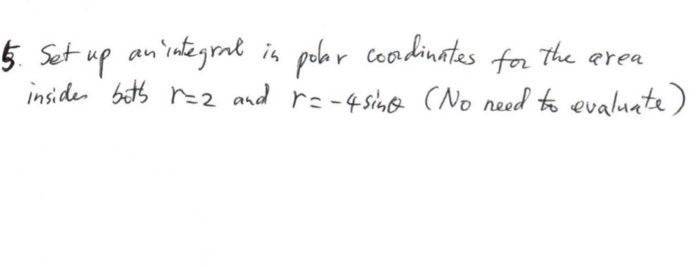 5. Set up an integral in polar coordinates for the area
inside both r=2 and r=-4sinθ (No need to evaluate)